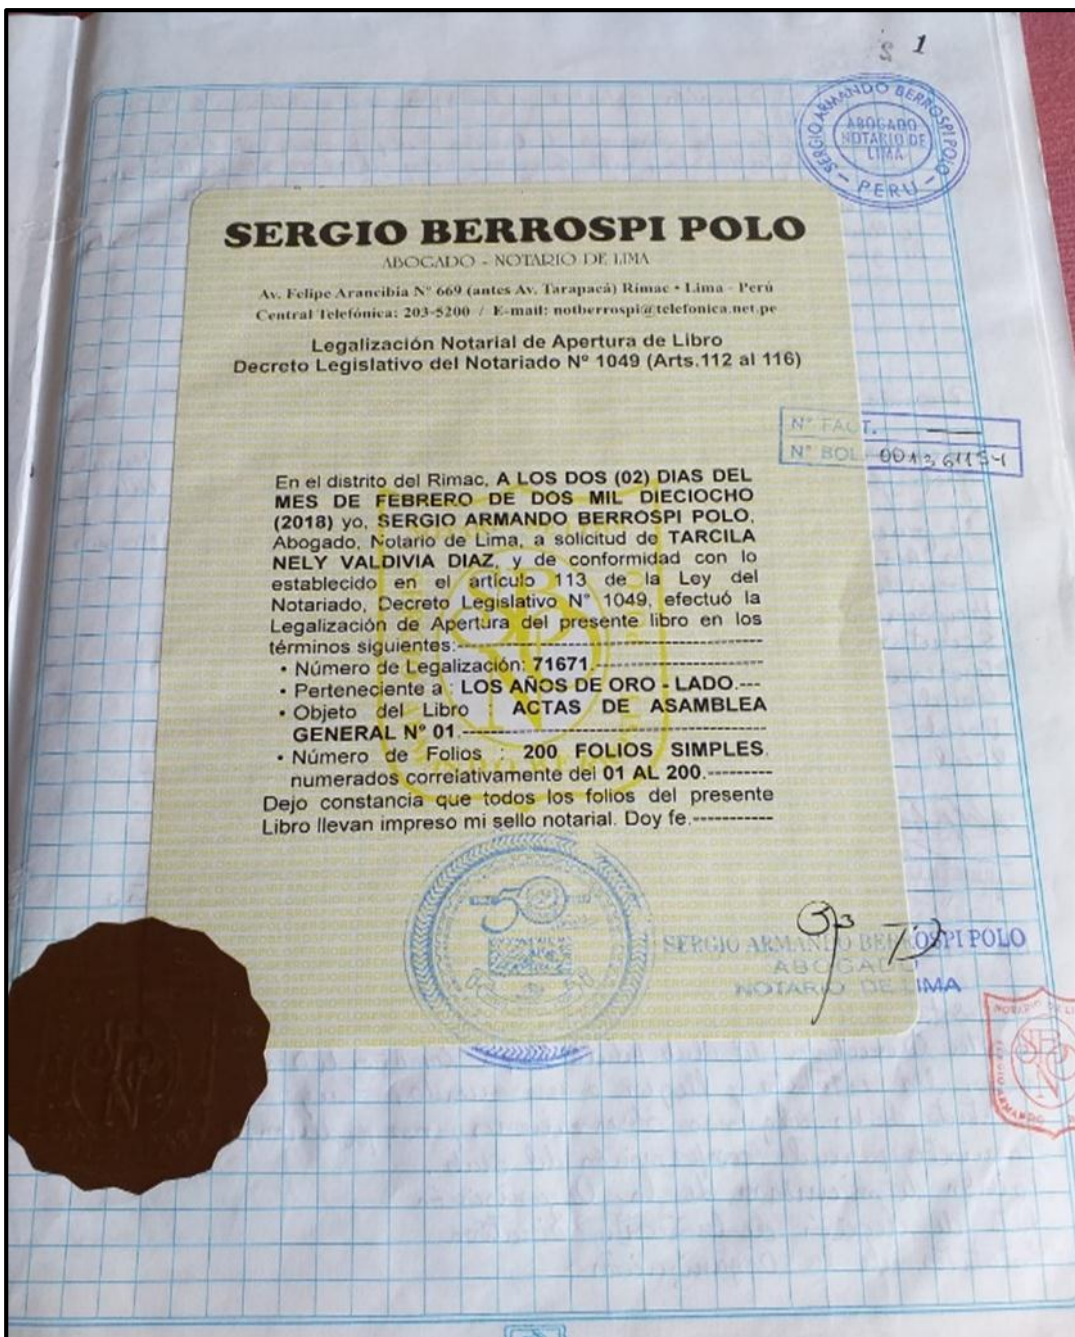 1
SERGIO ARMANDO BERROSPI POLO
ABOGADO
NOTARIO DE
LIMA
- PERU -
SERGIO BERROSPI POLO
ABOGADO - NOTARIO DE LIMA
Av. Felipe Arancibia N° 669 (antes Av. Tarapacá) Rimac • Lima - Perú
Central Telefónica: 203-5200 / E-mail: notberrospi@telefonica.net.pe
Legalización Notarial de Apertura de Libro
Decreto Legislativo del Notariado Nº 1049 (Arts.112 al 116)
N° FACT.
N° BOL.
En el distrito del Rimac, A LOS DOS (02) DIAS DEL
MES DE FEBRERO DE DOS MIL DIECIOCHO
(2018) yo, SERGIO ARMANDO BERROSPI POLO,
Abogado, Notario de Lima, a solicitud de TARCILA
NELY VALDIVIA DIAZ, y de conformidad con lo
establecido en el artículo 113 de la Ley del
Notariado, Decreto Legislativo N° 1049, efectuó la
Legalización de Apertura del presente libro en los
términos siguientes:------------------------------------
• Número de Legalización: 71671.--------------------
• Perteneciente a : LOS AÑOS DE ORO - LADO.---
• Objeto del Libro : ACTAS DE ASAMBLEA
GENERAL N° 01.------------------------------------
• Número de Folios : 200 FOLIOS SIMPLES,
numerados correlativamente del 01 AL 200.---------
Dejo constancia que todos los folios del presente
Libro llevan impreso mi sello notarial. Doy fe.-----------
SERGIO ARMANDO BERROSPI POLO
ABOGADO
NOTARIO DE LIMA